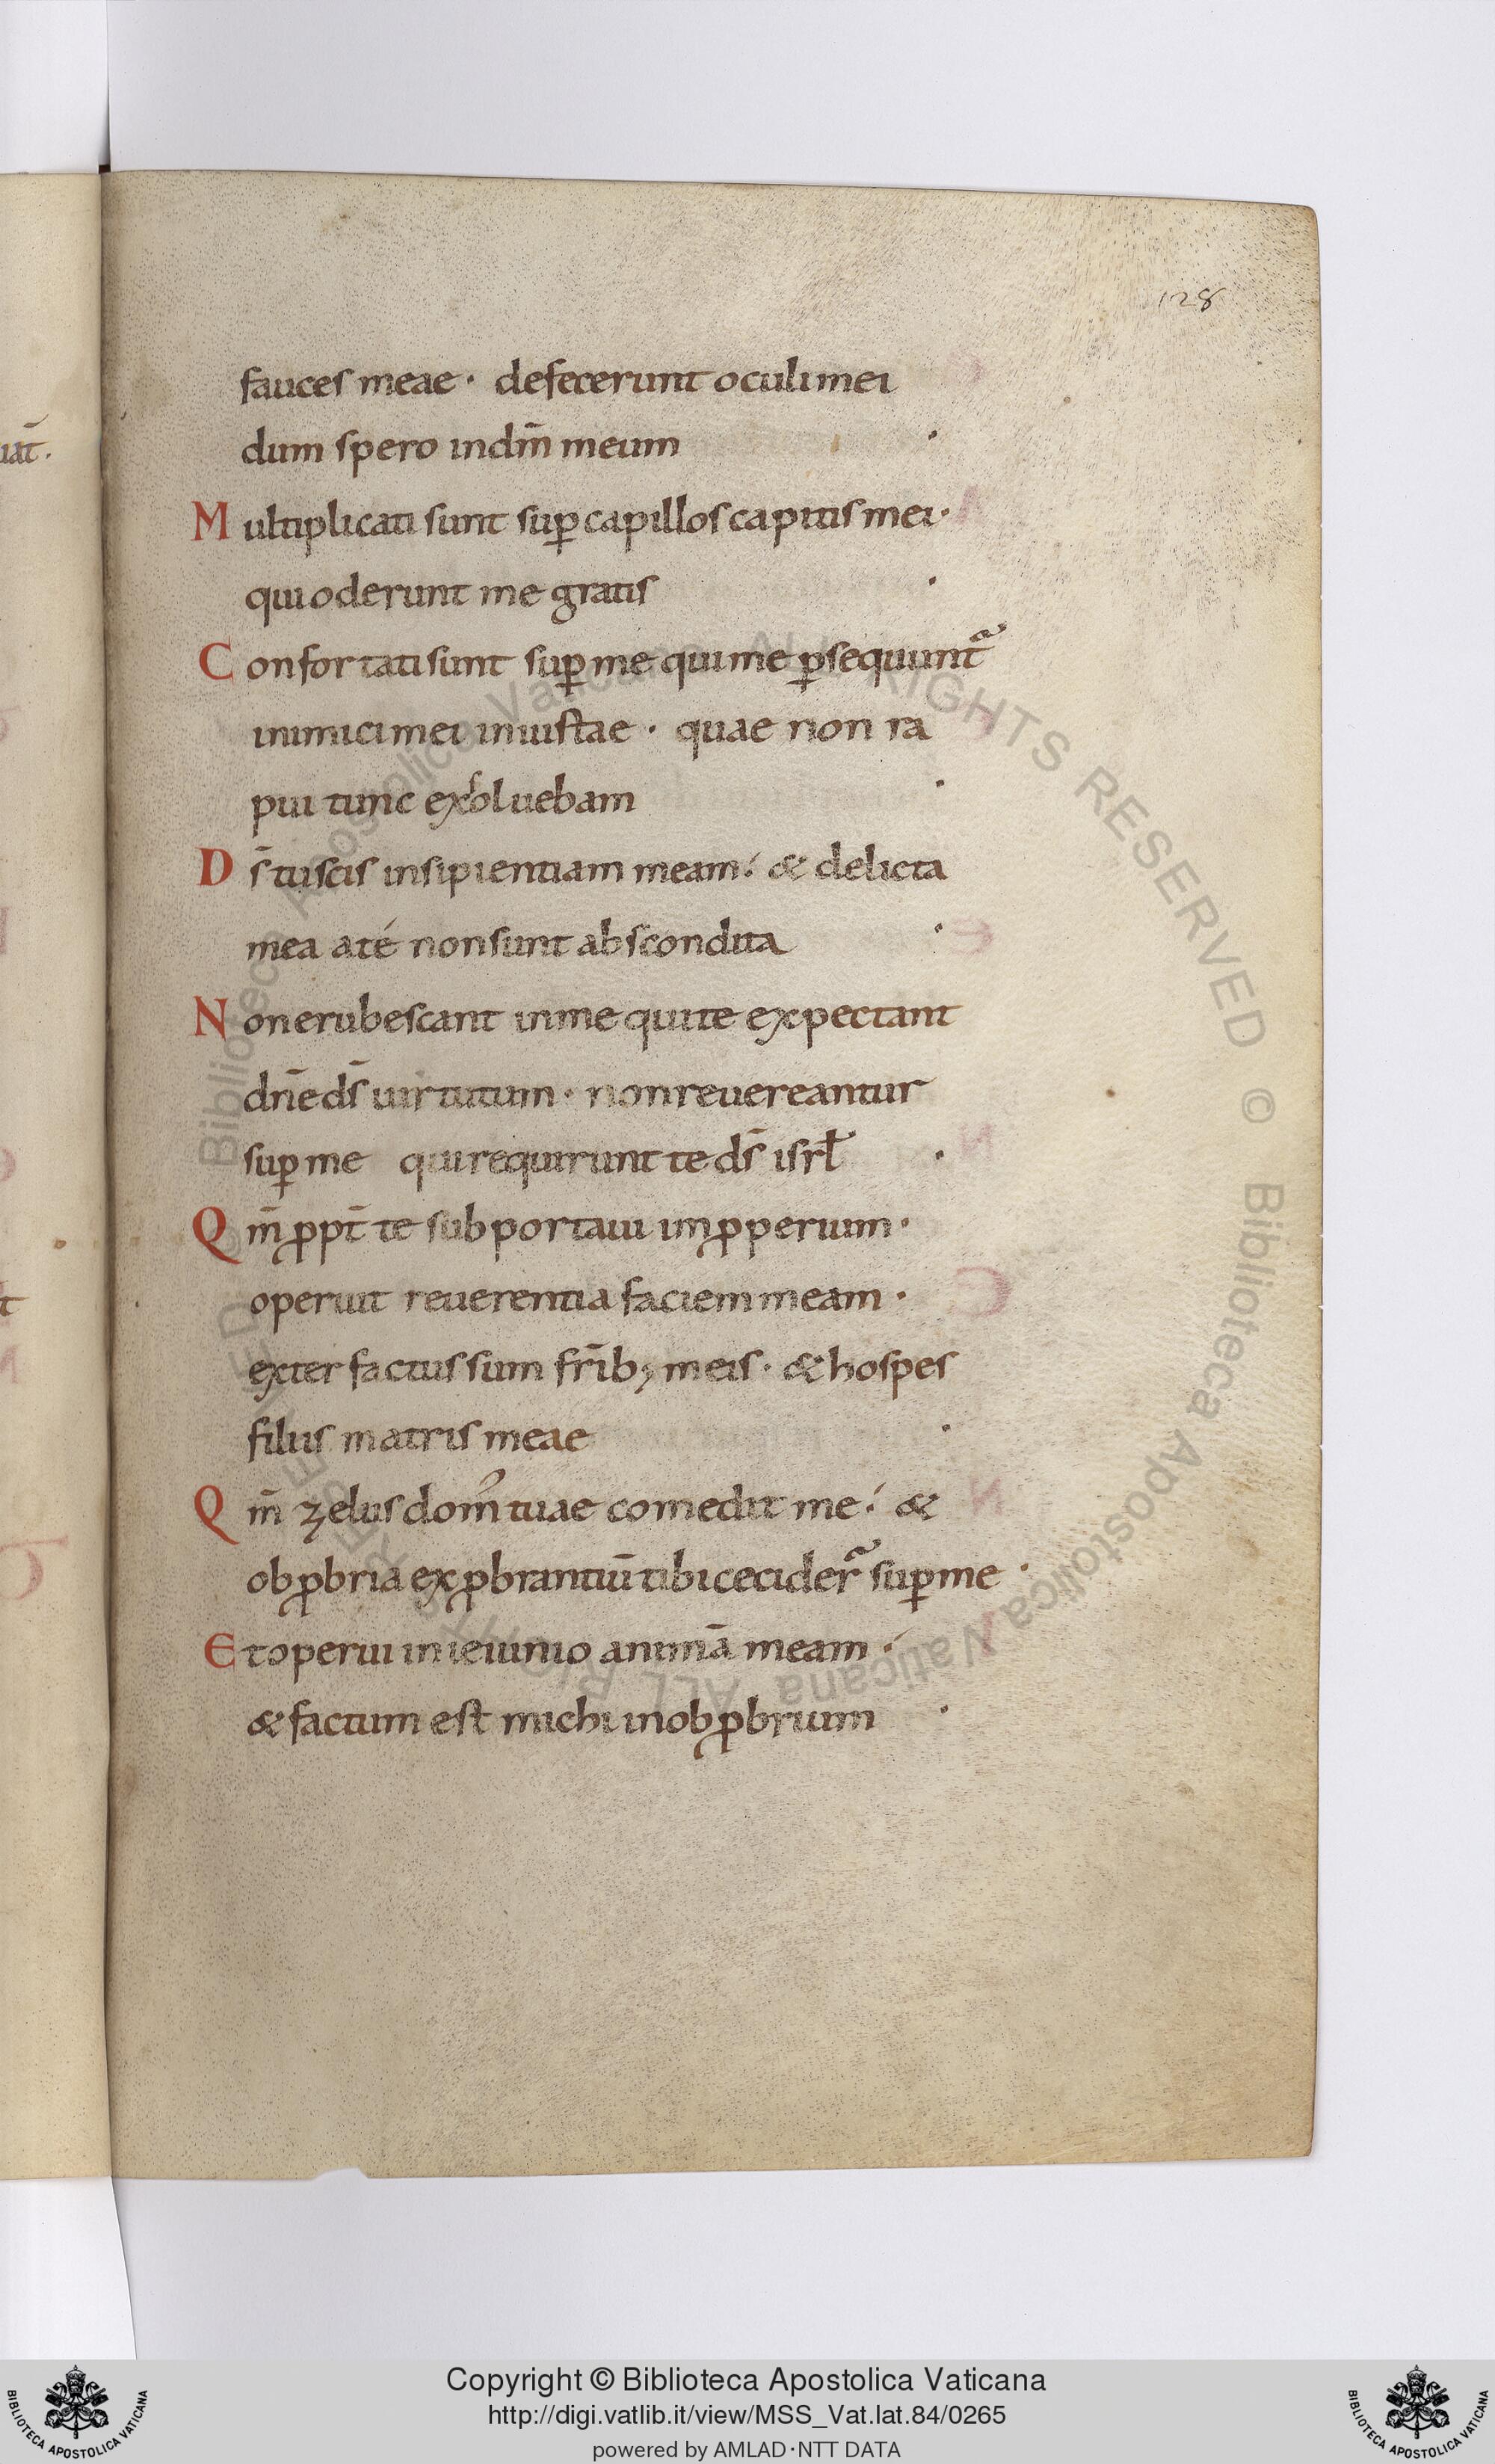 128
uat̄.
fauces meae · defecerunt oculi mei
dum spero in dm̄ meum ·
Multiplicati sunt suꝑ capillos capitis mei·
qui oderunt me gratis ·
Confortati sunt suꝑ me qui me ꝑsequuntᷓ
inimici mei iniustae · quae non ra
pui tunc exsoluebam ·
Ds̄ tu scis insipientiam meam: & delicta
mea a té non sunt abscondita ·
Non erubescant in me qui te expectant
dn̄e ds̄ uirtutum · non reuereantur
suꝑ me qui requirunt te ds̄ isrl̄ ·
Qm̄ ꝓpt̄ te subportaui imꝓperium ·
operuit reuerentia faciem meam ·
exter factus sum fr̄ib; meis · & hospes
filiis matris meae ·
Qm̄ zelus dom᾽ tuae comedit me: &
obꝓbria exꝓbrantiū tibi ceciderᷓ suꝑ me ·
Et operui in ieiunio animā meam :
& factum est michi in obꝓbrium ·
Copyright © Biblioteca Apostolica Vaticana
http://digi.vatlib.it/view/MSS_Vat.lat.84/0265
powered by AMLAD·NTT DATA
BIBLIOTECA APOSTOLICA VATICANA
BIBLIOTECA APOSTOLICA VATICANA
Biblioteca Apostolica Vaticana ALL RIGHTS RESERVED © Biblioteca Apostolica Vaticana ALL RIGHTS RESERVED ©